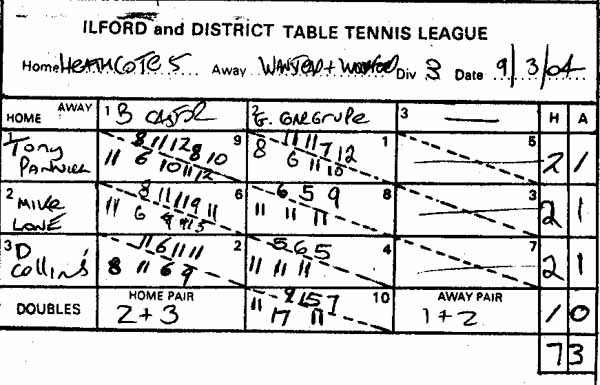 ILFORD and DISTRICT TABLE TENNIS LEAGUE
Home HEATHCOTE 5 Away WANSTED + WOODFOD Div 3 Date 9/3/04
HOME AWAY 1 B 2 E. GARGRULE 3 — H A
1 Tony 9 1 5 2 1
8 11 12 8 10 11 11 7 12
11 6 10 11 12 8 6 11 10
2 MIKE LONE 6 8 3 2 1
8 11 11 9 11 6 5 9
11 6 11 11 11
3 D Collins 2 4 7 2 1
11 6 11 11 5 6 5
8 11 6 9 11 11 11
DOUBLES HOME PAIR 2 + 3 10 AWAY PAIR 1 + 2 1 0
9 15 7
11 17 11
7 3